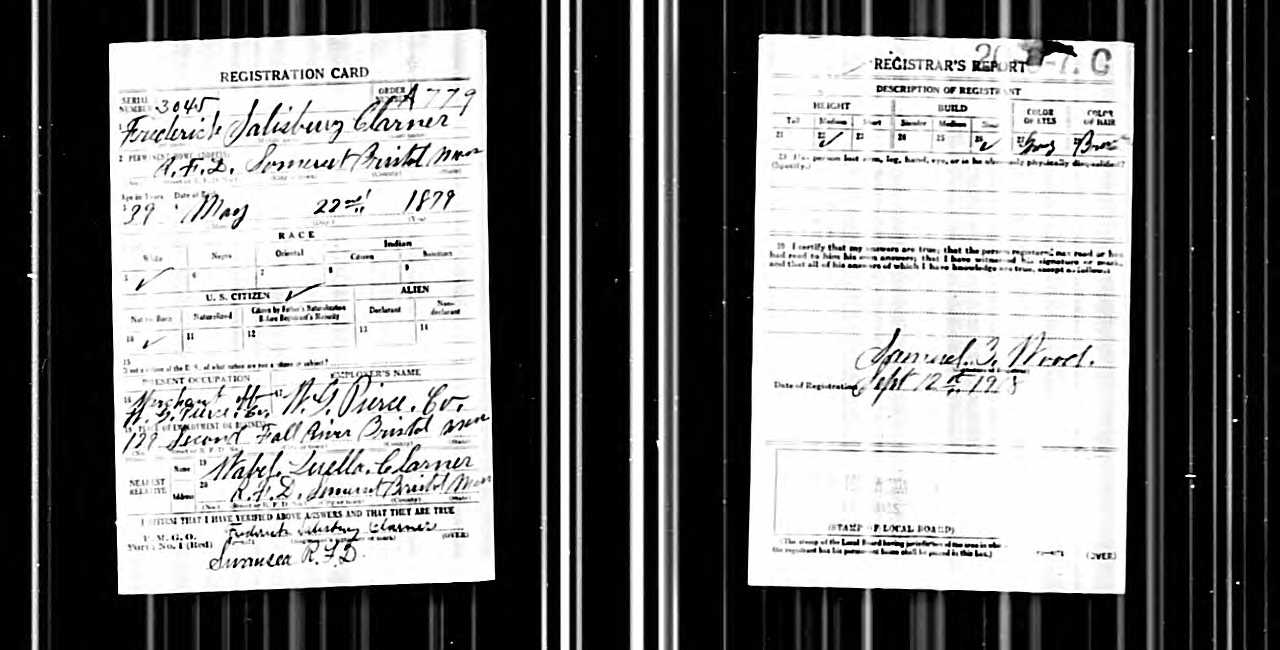 REGISTRATION CARD
SERIAL NUMBER 3045
ORDER NUMBER A 779
Frederick Salisbury Clarner
2 PERMANENT HOME ADDRESS:
R. F. D. Somerset Bristol Mass
Age in Years Date of Birth
39 May 22nd 1879
RACE
White Negro Oriental Indian
Citizen Noncitizen
5 ✓ 6 7 8 9
U. S. CITIZEN ✓ ALIEN
Native Born Naturalized Citizen by Father's Naturalization Before Registrant's Majority Declarant Non-declarant
10 ✓ 11 12 13 14
15
PRESENT OCCUPATION EMPLOYER'S NAME
16 Merchant 17 W. G. Pierce. Co.
PLACE OF EMPLOYMENT OR BUSINESS
129 Second Fall River Bristol Mass
NEAREST RELATIVE
Name 19 Mabel. Luella. Clarner
Address 20 R. F. D. Somerset Bristol Mass
I AFFIRM THAT I HAVE VERIFIED ABOVE ANSWERS AND THAT THEY ARE TRUE
P. M. G. O.
Form No. 1 (Red) Frederick Salisbury Clarner (OVER)
Swansea R.F.D.
REGISTRAR'S REPORT
DESCRIPTION OF REGISTRANT
HEIGHT BUILD COLOR OF EYES COLOR OF HAIR
Tall Medium Short Slender Medium Stout
21 22 ✓ 23 24 25 26 ✓ 27 Gray 28
29 Has person lost arm, leg, hand, eye, or is he obviously physically disqualified?
(Specify.)
30 I certify that my answers are true; that the person registered has read or has
had read to him his own answers; that I have witnessed his signature or mark,
and that all of his answers of which I have knowledge are true, except as follows:
Samuel. Wood.
Date of Registration Sept 12th 1918
(STAMP OF LOCAL BOARD)
(The stamp of the Local Board having jurisdiction of the area in which
the registrant has his permanent home shall be placed in this box.)
(OVER)